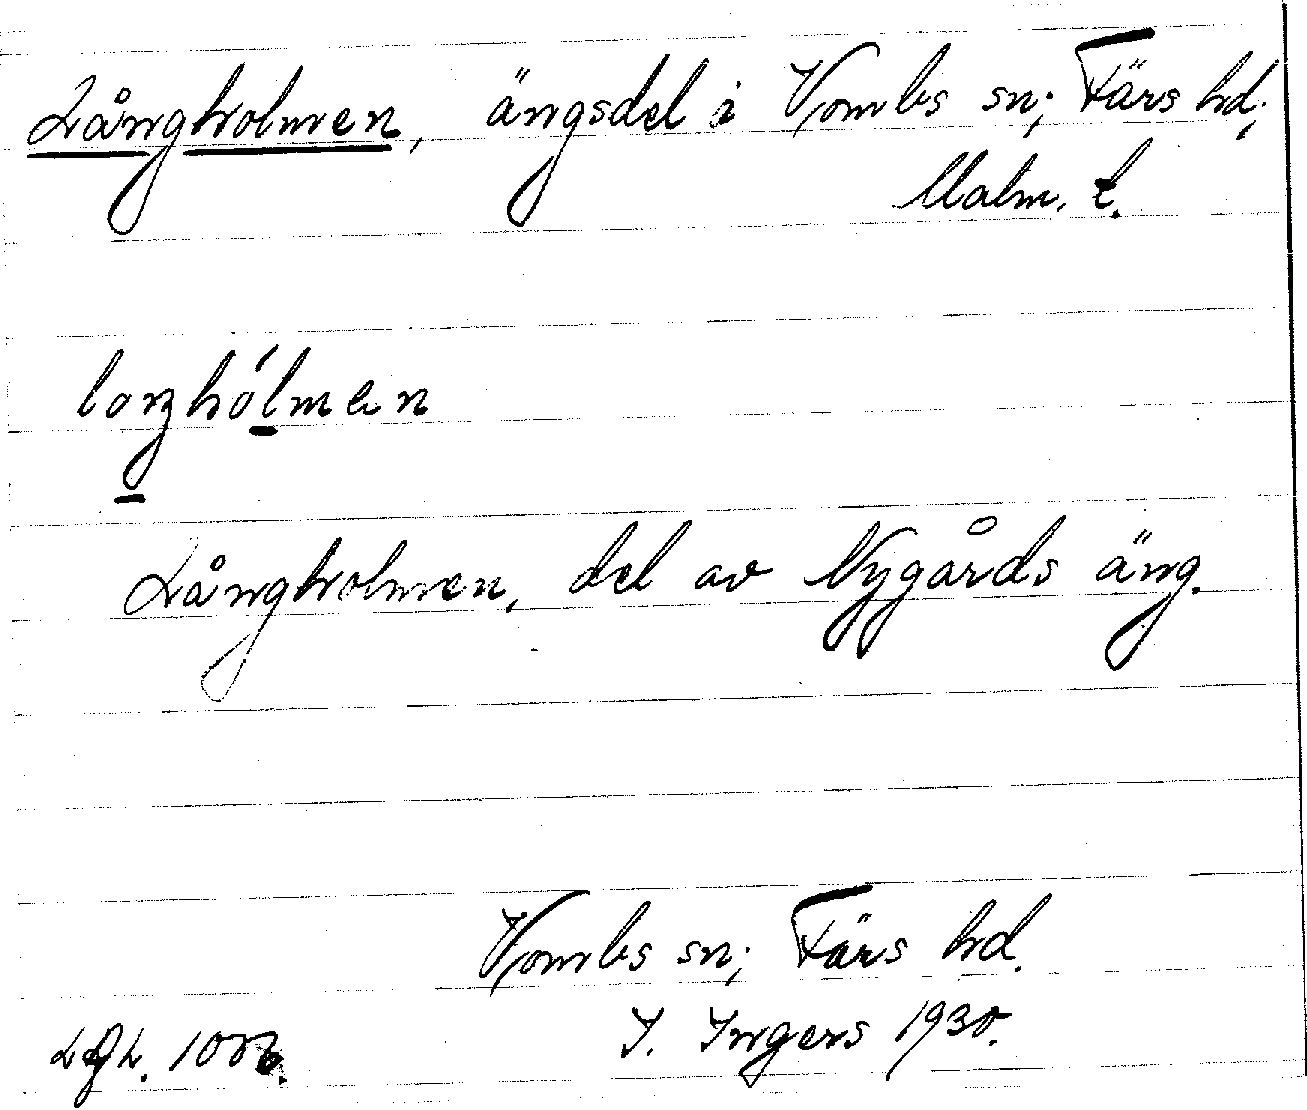 Långholmen, ängsdel i Vombs sn; Färs hd;
Malm. l.
Långholmen, del av Nygårds äng.
Vombs sn; Färs hd.
I. Ingers 1930.